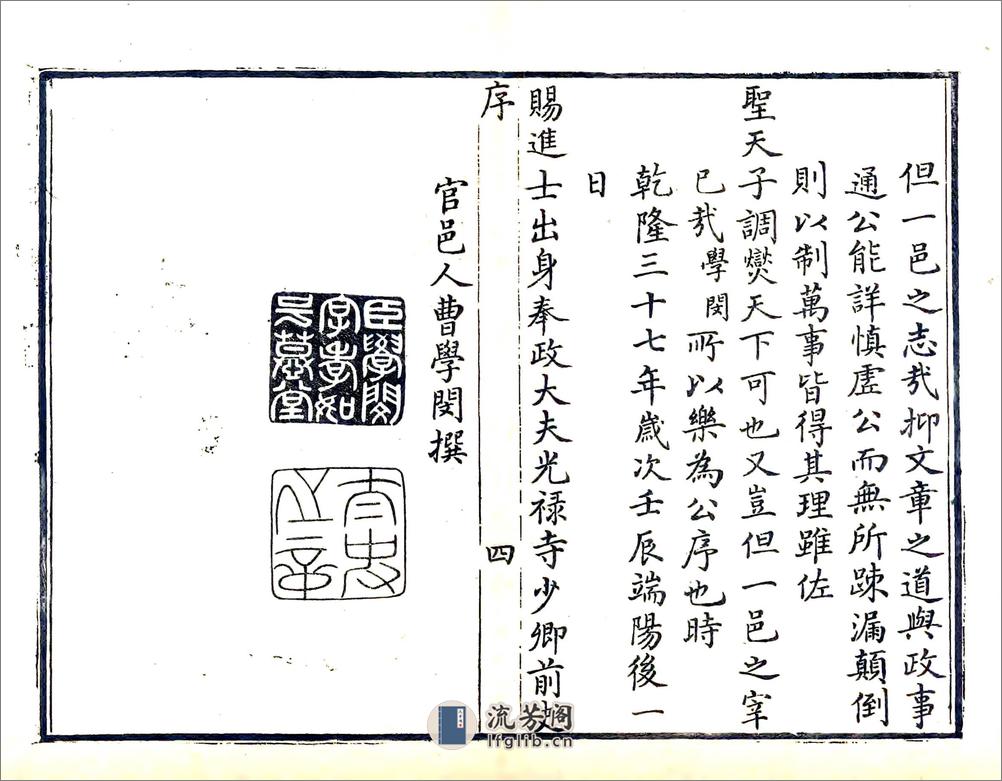 但一邑之志㢤抑文章之道與政事
通公能詳慎虛公而無所踈漏顛倒
則以制萬事皆得其理雖佐
聖天子調爕天下可也又豈但一邑之宰
已㢤學閔所以樂為公序也時
乾隆三十七年歲次壬辰端陽後一
日
賜進士出身奉政大夫光禄寺少卿前史
序
四
官邑人曹學閔撰
臣學閔
字孝如
號慕堂
流芳阁
lfglib.cn